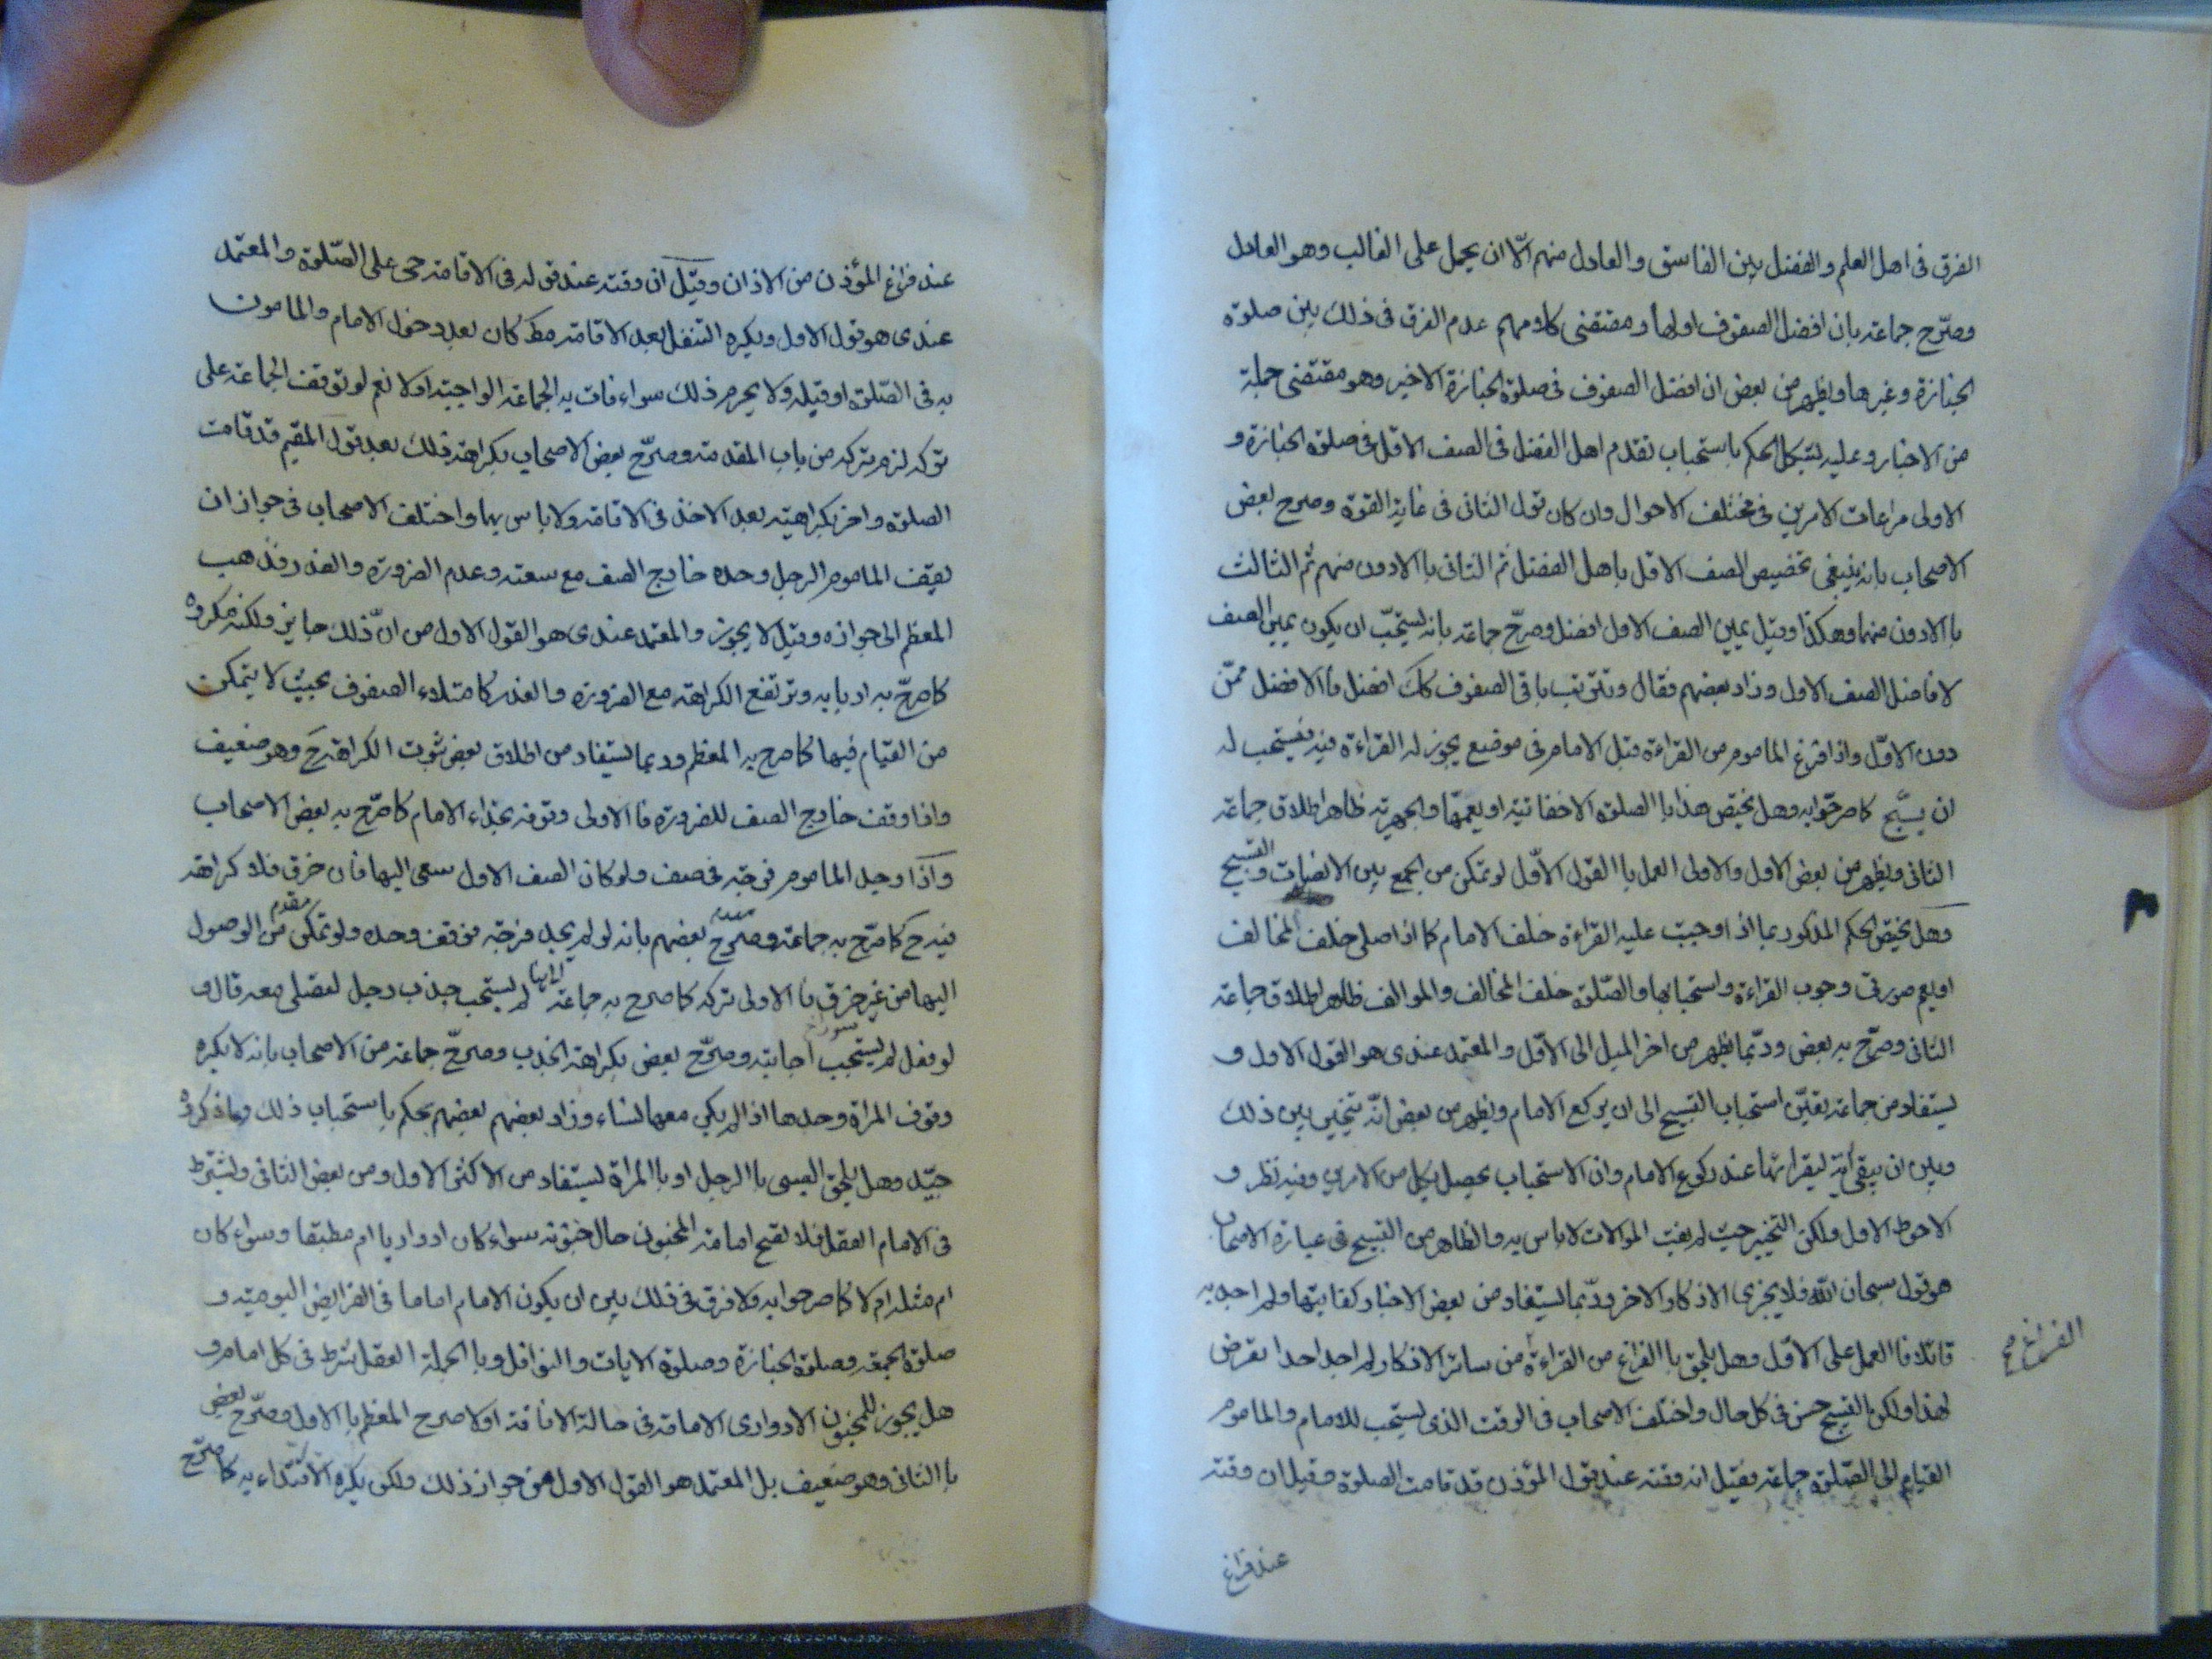 الفرق فى اهل العلم والفضل بين الفاسق والعادل منهم الّا ان يحمل على الغالب وهو العادل
وصرّح جماعة بان افضل الصفوف اولها ومقتضى كلامهم عدم الفرق فى ذلك بين صلوة
الجنازة وغيرها ويظهر من بعض ان افضل الصفوف فى صلوة الجنازة الاخير وهو مقتضى جملة
من الاخبار وعليه يشكل الحكم باستحباب تقدم اهل الفضل فى الصف الاول فى صلوة الجنازة و
الاولى مراعات الامرين فى مختلف الاحوال وان كان قول الثانى فى غاية القوة وصرح بعض
الاصحاب بانه ينبغى تخصيص الصف الاول باهل الفضل ثم الثانى باالادون منهم ثم الثالث
باالادون منهما وهكذا وقيل يمين الصف الاول افضل وصرّح جماعة بانه يستحبّ ان يكون يمين الصف
لافاضل الصف الاول وزاد بعضهم فقال وترتيب باقى الصفوف كك افضل فاالافضل ممّن
دون الاوّل واذا فرغ الماموم من القراءة قبل الامام فى موضع يجوز له القراءة فيه فيستحب له
ان يسبّح كما صرحوا به وهل يختص هذا باالصلوة الاخفاتية او يعمّها والجهرية ظاهر اطلاق جماعة
الثانى ويظهر من بعض الاول والاولى العمل باالقول الاوّل لو تمكن من الجمع بين الانصات والتسبيح
وهل يختص الحكم المذكور بما اذا وجبت عليه القراءة خلف الامام كما اذا صلى خلف المخالف
او يعم صورتى وجوب القراءة واستحبابها والصّلوة خلف المخالف والموالف ظاهر اطلاق جماعة
الثانى وصرّح به بعض وربّما يظهر من اخر الميل الى الاوّل والمعتمد عندى هو القول الاول و
يستفاد من جماعة تعيّن استحباب التسبيح الى ان يركع الامام ويظهر من بعض انّه يتخيّر بين ذلك
وبين ان يبقى آية ليقراءها عند ركوع الامام وان الاستحباب يحصل بكل من الامرين وفيه نظر و
الاحوط الاول ولكن التخيير حيث لم يفت الموالات لاباس به والظاهر من التسبيح فى عبارة الاصحاب
هو قول سبحان اللّه فلا يجزى الاذكار الاخر وربّما يستفاد من بعض الاخبار كفايتها ولم اجد به
قائلا فاالعمل على الاوّل وهل يلحق باالفراغ من القراءة من سائر الاذكار لم اجد احدا تعرض
لهذا ولكن التسبيح حسن فى كل حال واختلف الاصحاب فى الوقت الذى يستحب للامام والماموم
القيام الى الصّلوة جماعة فقيل انه وقته عند قول المؤذن قد قامت الصلوة وقيل ان وقته
الفراغ صح
عند فراغ
عند فراغ المؤذن من الاذان وقيل ان وقته عند قوله فى الاقامة حى على الصّلوة والمعتمد
عندى هو قول الاول ويكره التنفل بعد الاقامة مط كان بعد دخول الامام والمامون
به فى الصّلوة او قبله ولا يحرم ذلك سواء فات به الجماعة الواجبة اولا نعم لو توقف الجماعة على
تركه لزم تركه من باب المقدمة وصرّح بعض الاصحاب بكراهة ذلك بعد قول المقيم قد قامت
الصلوة واخر بكراهيته بعد الاخذ فى الاقامة ولا باس بهما واختلف الاصحاب فى جواز ان
يقف الماموم الرجل وحده خارج الصف مع سعته وعدم الضرورة والعذر فذهب
المعظم الى جوازه وقيل لا يجوز والمعتمد عندى هو القول الاول من انّ ذلك جايز ولكنه مكروه
كما صرّح به اربابه وترتفع الكراهة مع الضرورة والعذر كامتلاء الصفوف بحيث لا يتمكن
من القيام فيها كما صرح به المعظم وربما يستفاد من اطلاق بعض ثبوت الكراهة ح وهو ضعيف
واذا وقف خارج الصف للضرورة فاالاولى وقوفه بحذاء الامام كما صرّح به بعض الاصحاب
واذا وجد الماموم فرجة فى صف ولو كان الصف الاول سعى اليها فان خرق فلا كراهة
فيه ح كما صرّح به جماعة وصرّح بعضهم بانه لو لم يجد فرجة فوقف وحده ولو تمكن مقدم من الوصول
اليها من غير خرق فاالاولى تركه كما صرح به جماعة لم يستحب جذب رجل ليصلى معه قال و
لو فعل لم يستحب اجابته وصرّح بعض بكراهة الجذب وصرّح جماعة من الاصحاب بانه لا يكره
وقوف المراة وحدها اذا لم يكن معها نساء وزاد بعضهم بعضهم بحكم باستحباب ذلك وما ذكروه
جيّد وهل يلحق الصبى باالرجل او باالمراة يستفاد من الاكثر الاول ومن بعض الثانى ويشترط
فى الامام العقل فلا تصح امامة المجنون حال جنونه سواء كان ادواريا ام مطبقا وسواء كان
ام مثله ام لا كما صرحوا به ولا فرق فى ذلك بين ان يكون الامام اماما فى الفرايض اليومية و
صلوة الجمعة وصلوة الجنازة وصلوة الايات والنوافل وباالجملة العقل شرط فى كل امام و
هل يجوز للمجنون الادوارى الامامة فى حالة الافاقة اولا صرح المعظم باالاول وصرّح بعض
باالثانى وهو ضعيف بل المعتمد هو القول الاول من جواز ذلك ولكن يكره الاقتداء به كما صرّح